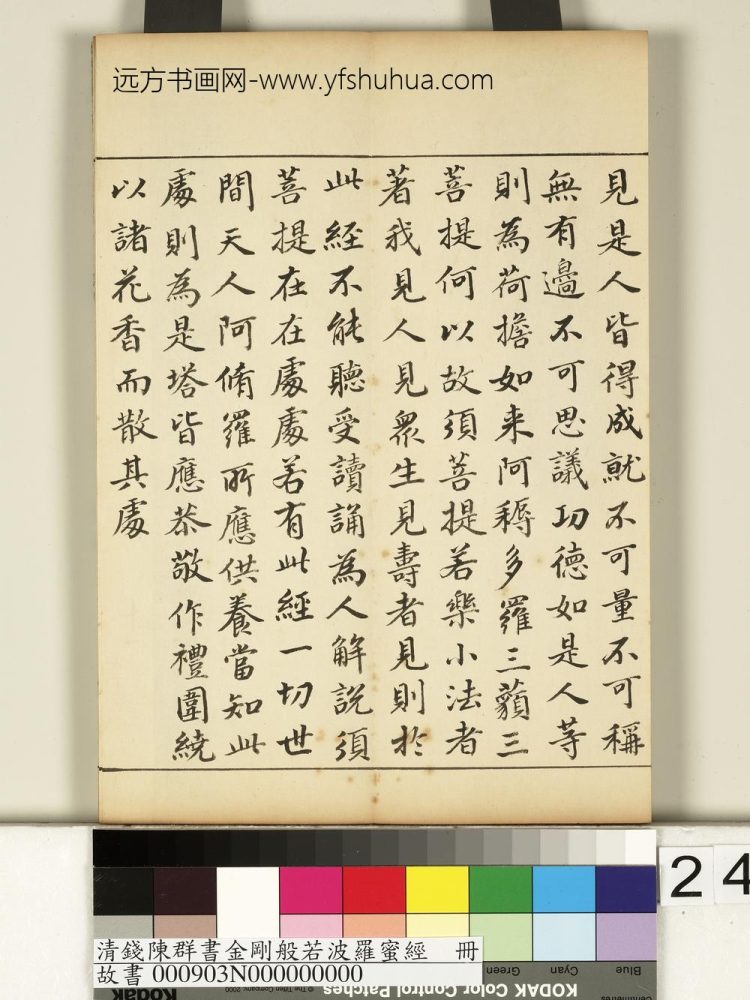 远方书画网-www.yfshuhua.com
見是人皆得成就不可量不可稱
無有邊不可思議功德如是人等
則為荷擔如来阿耨多羅三藐三
菩提何以故須菩提若樂小法者
著我見人見衆生見壽者見則於
此經不能聽受讀誦為人解說須
菩提在在處處若有此經一切世
間天人阿脩羅所應供養當知此
處則為是塔皆應恭敬作禮圍繞
以諸花香而散其處
24
清錢陳群書金剛般若波羅蜜經 冊
故書 000903N000000000
Green Cyan Blue
KODAK Color Control Patches
Kodak